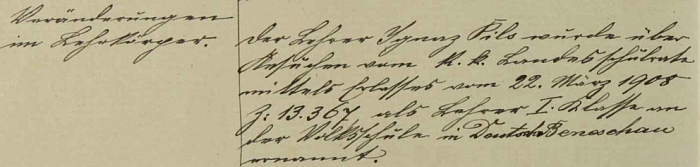 Veränderungen
im Lehrkörper.
Der Lehrer Ignaz Pilo wurde über
Ansuchen vom k. k. Landesschulrate
mittels Erlasses vom 22. März 1908
Z: 13.367 als Lehrer I. Klasse an
der Volksschule in Deutsch Beneschau
ernannt.